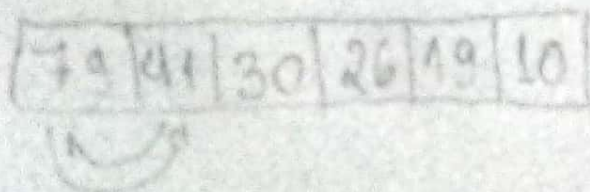 79 41 30 26 19 10